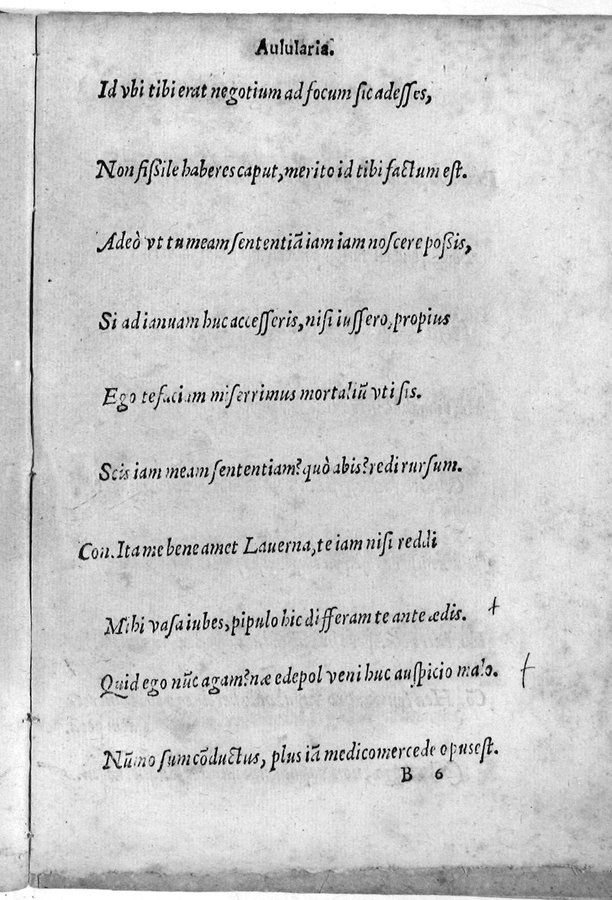 Aulularia.
Id vbi tibi erat negotium ad focum sic adesses,
Non fißile haberes caput, merito id tibi factum est.
Adeò vt tu meam sententiã iam iam noscere poßis,
Si ad ianuam huc accesseris, nisi iussero, propius
Ego te faciam miserrimus mortaliũ vti sis.
Scis iam meam sententiam? quò abis? redi rursum.
Con. Ita me bene amet Lauerna, te iam nisi reddi
Mihi vasa iubes, pipulo hic differam te ante ædis.
Quid ego nũc agam? næ edepol veni huc auspicio malo.
Nũmo sum cõductus, plus iã medico mercede opus est.
B 6